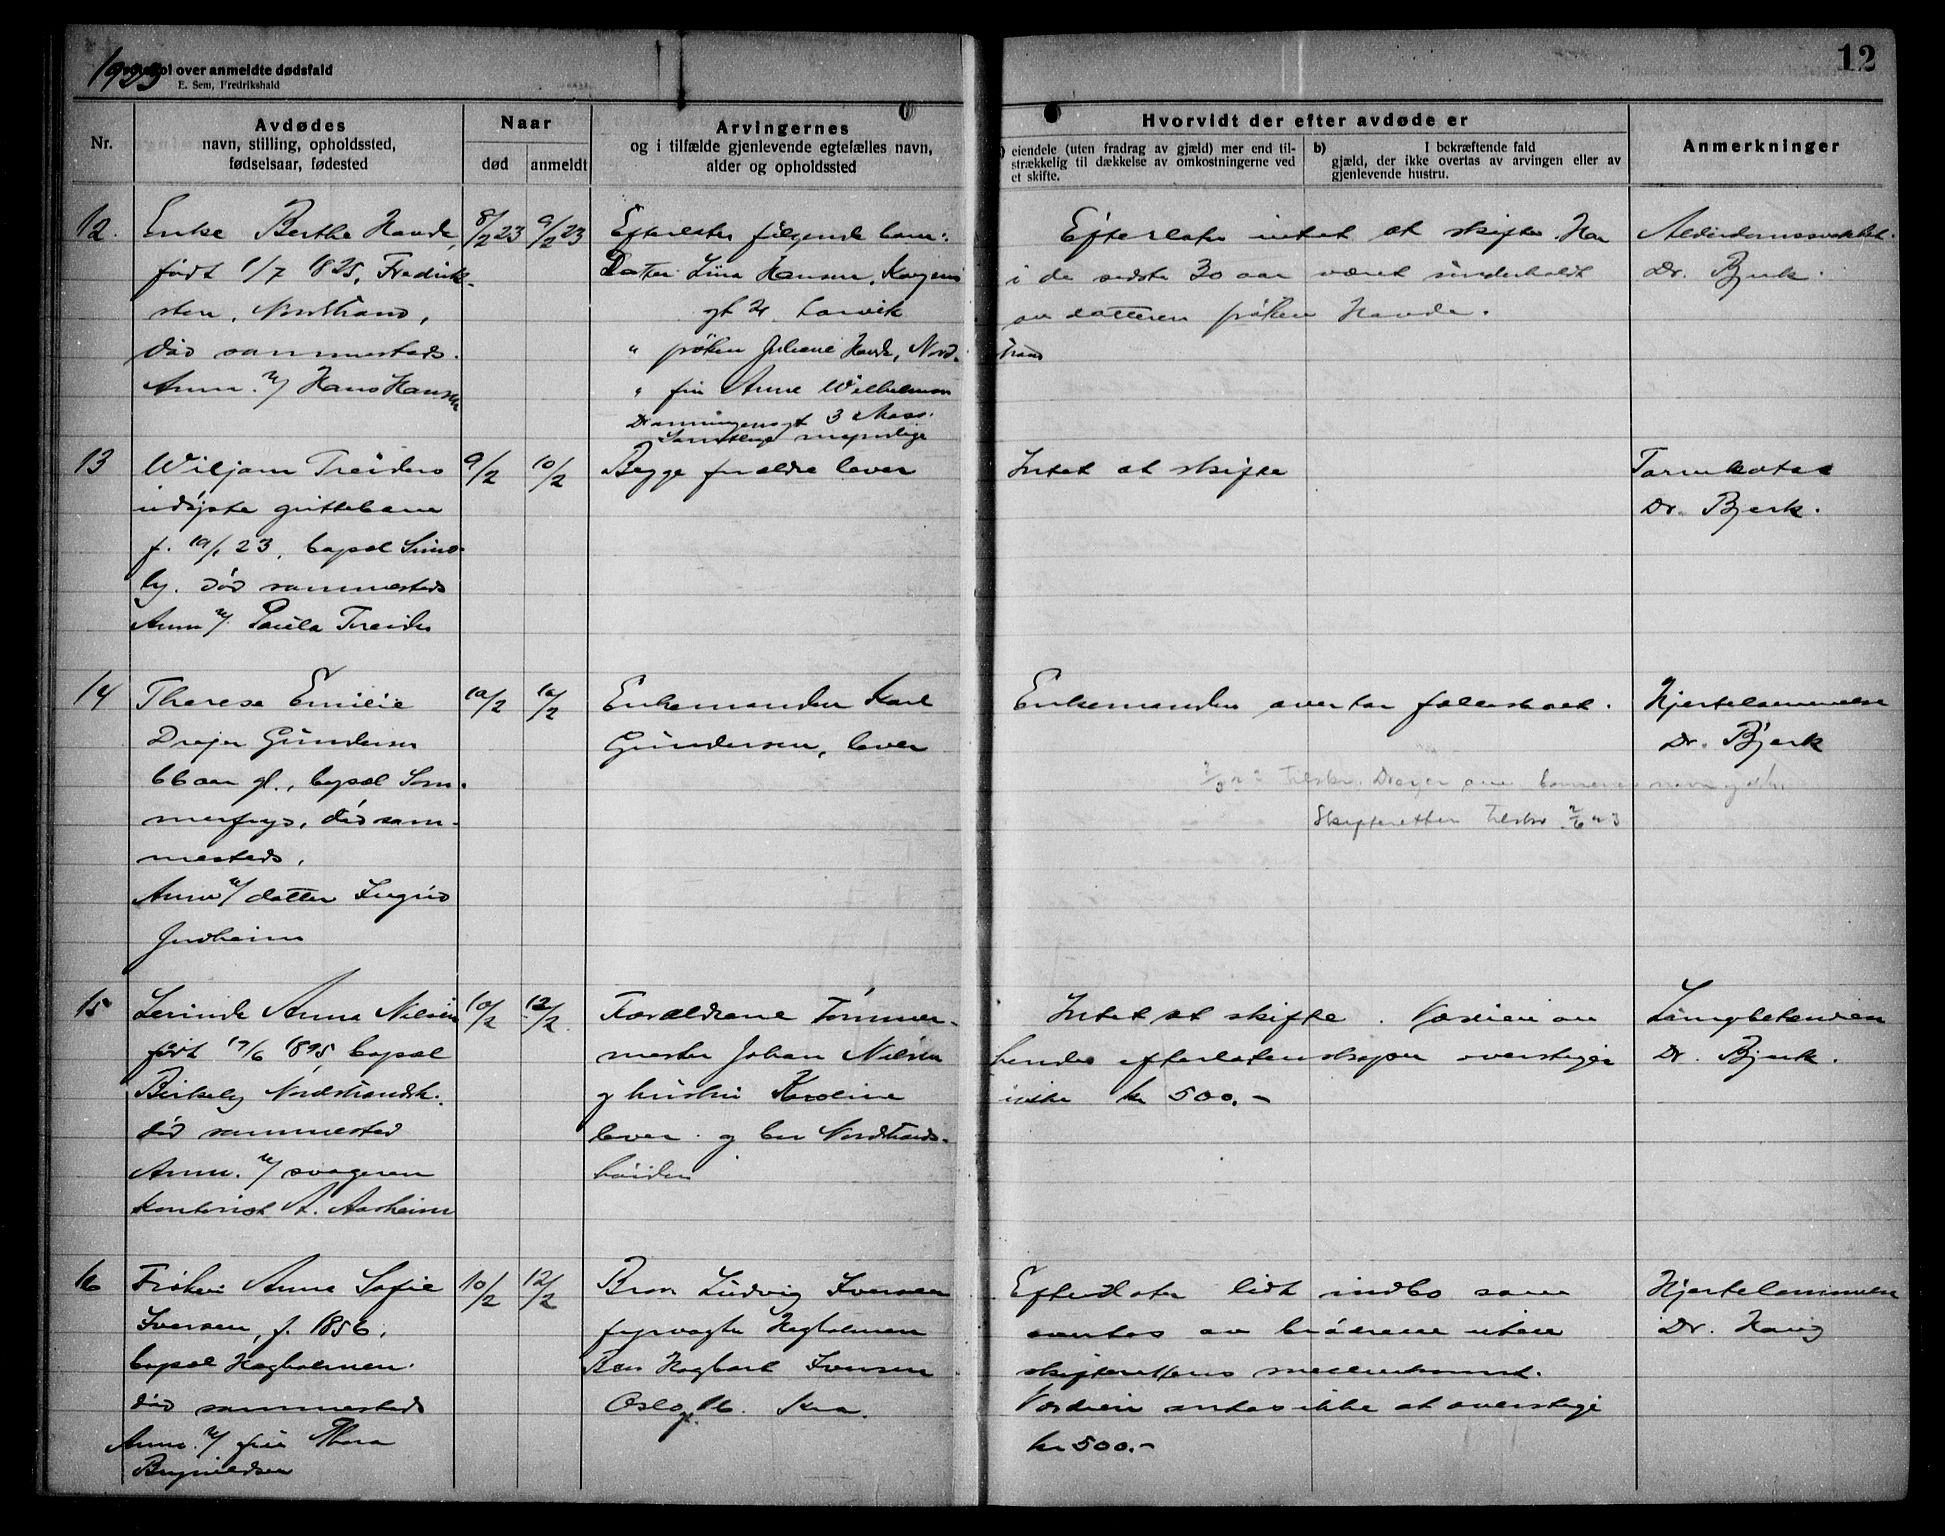 1923
Protokol over anmeldte dødsfald
E. Sem, Fredrikshald
12
Nr.
Avdødes
navn, stilling, opholdssted,
fødselsaar, fødested
Naar
død
anmeldt
Arvingernes
og i tilfælde gjenlevende egtefælles navn,
alder og opholdssted
Hvorvidt der efter avdøde er
eiendele (uten fradrag av gjæld) mer end til-
strækkelig til dækkelse av omkostningerne ved
et skifte.
b) I bekræftende fald
gjæld, der ikke overtas av arvingen eller av
gjenlevende hustru.
Anmerkninger
12.
Enke Berthe Havde,
født 1/7 1825, Fredrik-
sten, Nordstrand,
død sammesteds.
Anm. v/ Hans Hansen
8/2 23
9/2 23
Efterlater følgende barn:
Datter Lina Hansen,
Larvik
" frøken Juliane Havde, Nord-
strand
" fru Anna Wilhelmsen
Dronningensgt 3 Moss.
Samtlige myndige
Efterlater intet at skifte Har
i de sidste 30 aar været underholdt
av datteren frøken Havde.
Alderdomssvakhet.
Dr. Bjerk.
13
Wiljam Treiders
udøpte guttebarn
f. 19/1 23, bopæl Simo-
ly. død sammesteds
Anm v/ Paula Treider
9/2
10/2
Begge forældre lever
Intet at skifte
Tarmkatar
Dr. Bjerk.
14
Therese Emilie
Drejer Gundersen
66 aar gl., bopæl Som-
merfryd, død sam-
mesteds.
Anm v/ datter Ingrid
Jordheim
10/2
10/2
Enkemanden Karl
Gundersen, lever
Enkemanden overtar fællesboet.
Skifteretten tilskr 2/6 23
Hjertelammelse
Dr. Bjerk
15
Lerinde Anna Nilsen
født 17/6 1895, bopæl
Birkely Nordstrandsh.
død sammested
Anm. v/ svogeren
kontorist A. Aasheim
10/2
12/2.
Forældrene Tømmer-
mester Johan Nilsen
og hustru Karoline
lever og bor Nordstrands-
høiden
Intet at skifte. Værdien av
hendes efterladenskaper overstiger
ikke kr 500.-
Lungbetændelse
Dr. Bjerk.
16
Frøken Anna Sofie
Iversen, f. 1856,
bopæl Hegholmen.
død sammesteds
Anm. v/ fru Thora
Brynildsen
10/2
12/2
Bror Ludvig Iversen
fyrvogter Hegholmen
Bror Hagbart Iversen
Oslogt. 16. Kra.
Efterlater lidt indbo som
overtas av brødrene uten
skifterettens mellemkomst.
Værdien antas ikke at overstige
kr 500.-
Hjertelammelse
Dr. Haug